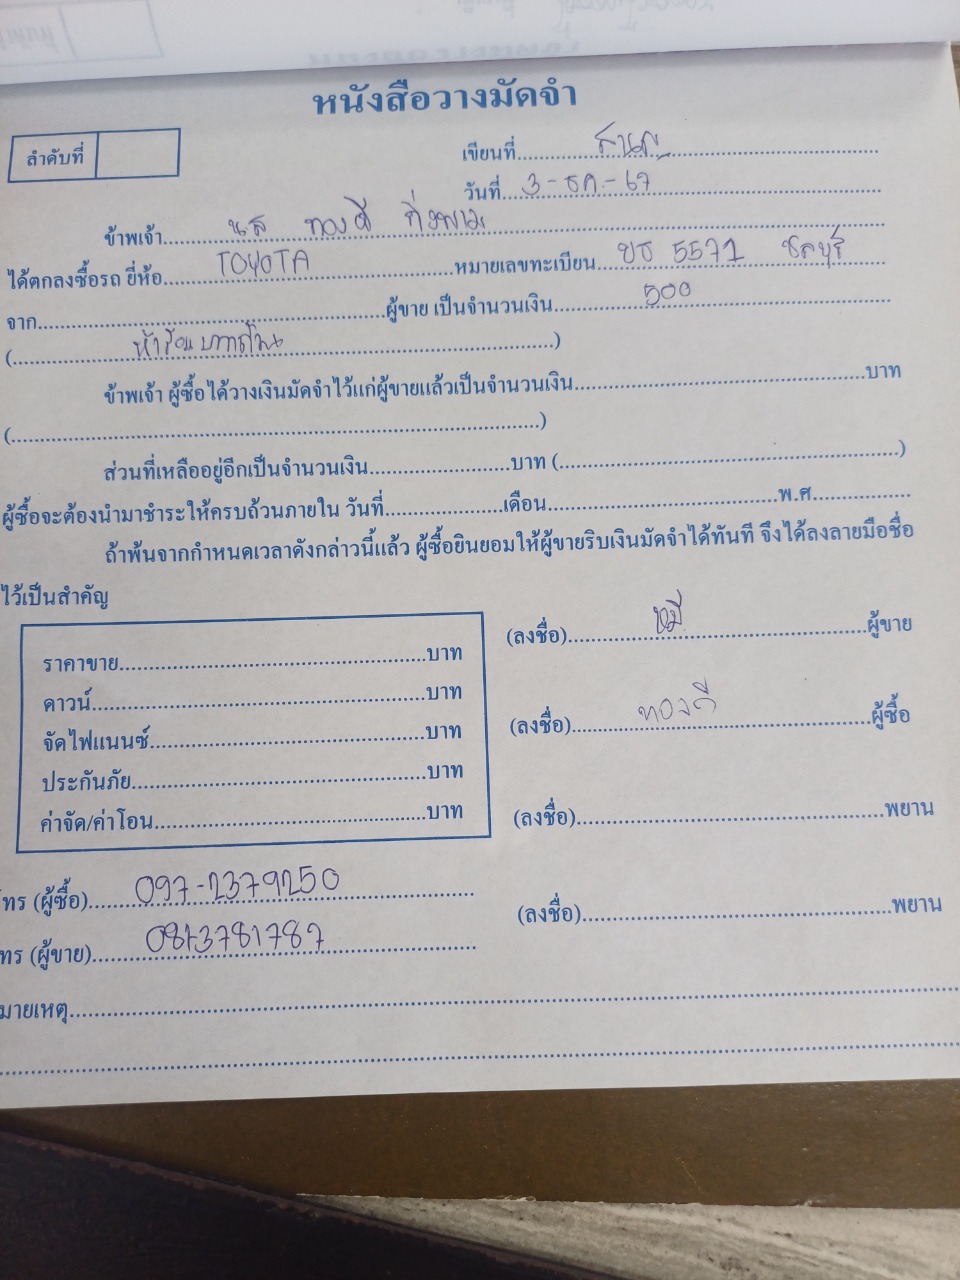 หนังสือวางมัดจำ
ลำดับที่
เขียนที่
วันที่ 3-ธค.-67
ข้าพเจ้า นส ทองดี
ได้ตกลงซื้อรถ ยี่ห้อ TOYOTA หมายเลขทะเบียน 5571 ชลบุรี
จาก ผู้ขาย เป็นจำนวนเงิน 500
(ห้าร้อยบาทถ้วน)
ข้าพเจ้า ผู้ซื้อได้วางเงินมัดจำไว้แก่ผู้ขายแล้วเป็นจำนวนเงิน บาท
( )
ส่วนที่เหลืออยู่อีกเป็นจำนวนเงิน บาท ( )
ผู้ซื้อจะต้องนำมาชำระให้ครบถ้วนภายใน วันที่ เดือน พ.ศ
ถ้าพ้นจากกำหนดเวลาดังกล่าวนี้แล้ว ผู้ซื้อยินยอมให้ผู้ขายริบเงินมัดจำได้ทันที จึงได้ลงลายมือชื่อ
ไว้เป็นสำคัญ
ราคาขาย บาท
ดาวน์ บาท
จัดไฟแนนซ์ บาท
ประกันภัย บาท
ค่าจัด/ค่าโอน บาท
(ลงชื่อ) หมี ผู้ขาย
(ลงชื่อ) ทองดี ผู้ซื้อ
(ลงชื่อ) พยาน
(ลงชื่อ) พยาน
โทร (ผู้ซื้อ) 097-2379250
โทร (ผู้ขาย) 0813781787
หมายเหตุ